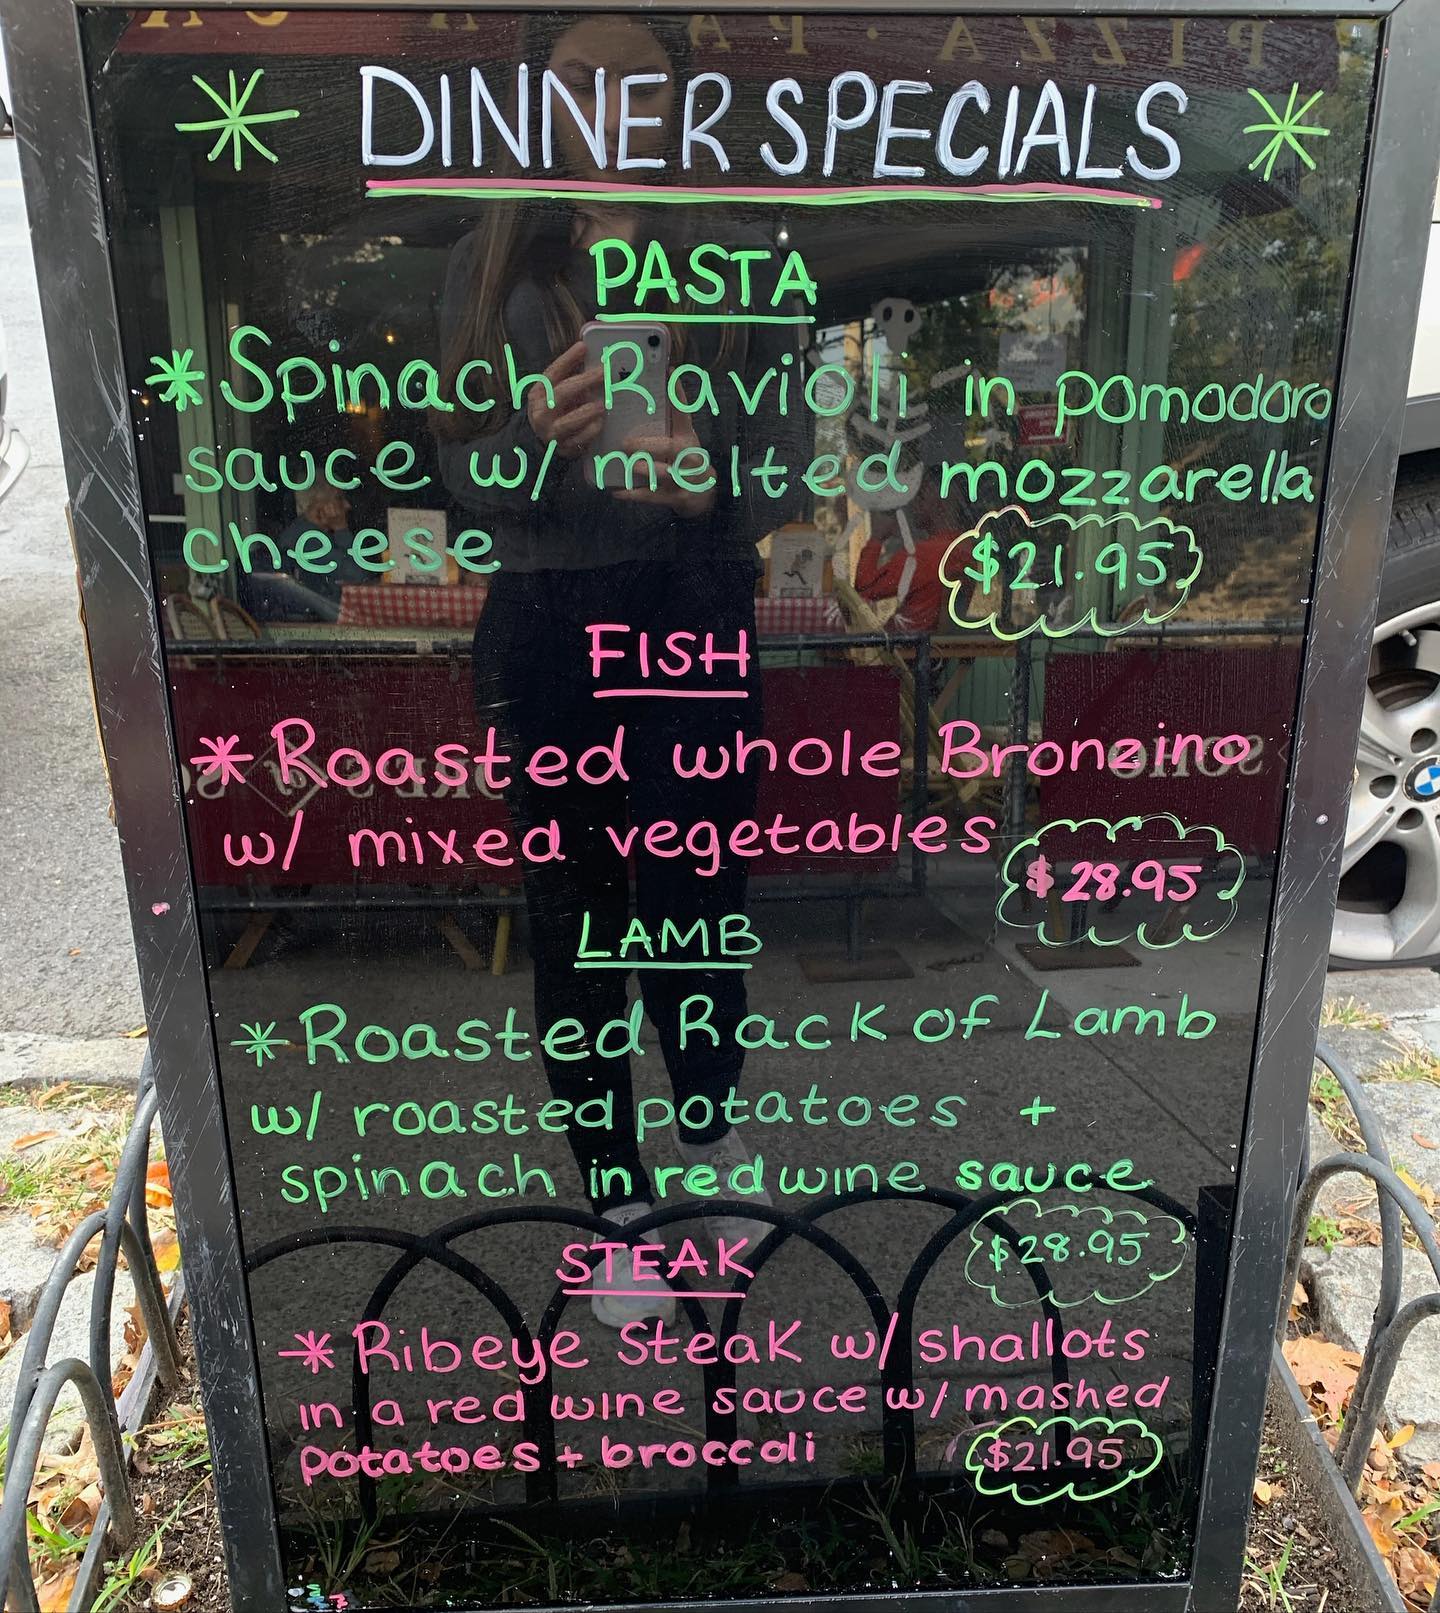 PIZZA · PA
DINNER SPECIALS
PASTA
*Spinach Ravioli in pomodoro
sauce w/ melted mozzarella
cheese
$21.95
FISH
*Roasted whole Bronzino
w/ mixed vegetables
$28.95
LAMB
*Roasted Rack of Lamb
w/ roasted potatoes +
spinach in red wine sauce
$28.95
STEAK
*Ribeye Steak w/ shallots
in a red wine sauce w/ mashed
potatoes + broccoli
$21.95